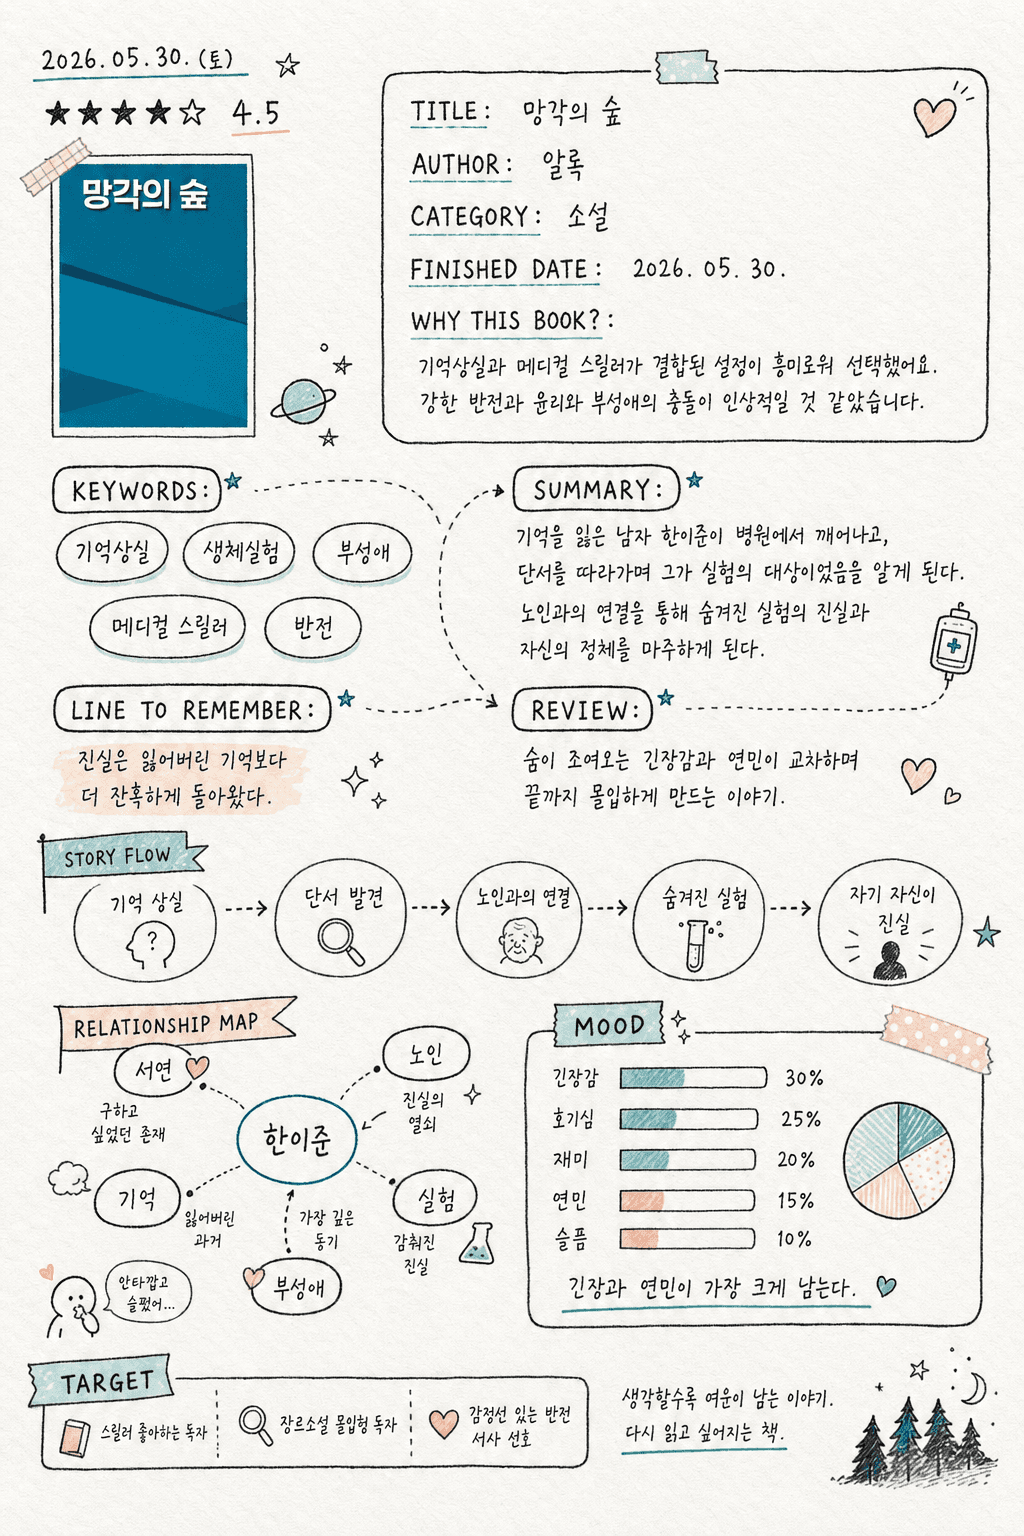 2026.05.30.(토)
4.5
망각의 숲
TITLE: 망각의 숲
AUTHOR: 알록
CATEGORY: 소설
FINISHED DATE: 2026. 05. 30.
WHY THIS BOOK?:
기억상실과 메디컬 스릴러가 결합된 설정이 흥미로워 선택했어요.
강한 반전과 윤리와 부성애의 충돌이 인상적일 것 같았습니다.
KEYWORDS:
기억상실
생체실험
부성애
메디컬 스릴러
반전
SUMMARY:
기억을 잃은 남자 한이준이 병원에서 깨어나고,
단서를 따라가며 그가 실험의 대상이었음을 알게 된다.
노인과의 연결을 통해 숨겨진 실험의 진실과
자신의 정체를 마주하게 된다.
LINE TO REMEMBER:
진실은 잃어버린 기억보다
더 잔혹하게 돌아왔다.
REVIEW:
숨이 조여오는 긴장감과 연민이 교차하며
끝까지 몰입하게 만드는 이야기.
STORY FLOW
기억 상실
?
단서 발견
노인과의 연결
숨겨진 실험
자기 자신이
진실
RELATIONSHIP MAP
서연
구하고
싶었던 존재
노인
진실의
열쇠
한이준
기억
잃어버린
과거
가장 깊은
동기
실험
감춰진
진실
부성애
안타깝고
슬펐어...
MOOD
긴장감 30%
호기심 25%
재미 20%
연민 15%
슬픔 10%
긴장과 연민이 가장 크게 남는다.
TARGET
스릴러 좋아하는 독자
장르소설 몰입형 독자
감정선 있는 반전
서사 선호
생각할수록 여운이 남는 이야기.
다시 읽고 싶어지는 책.